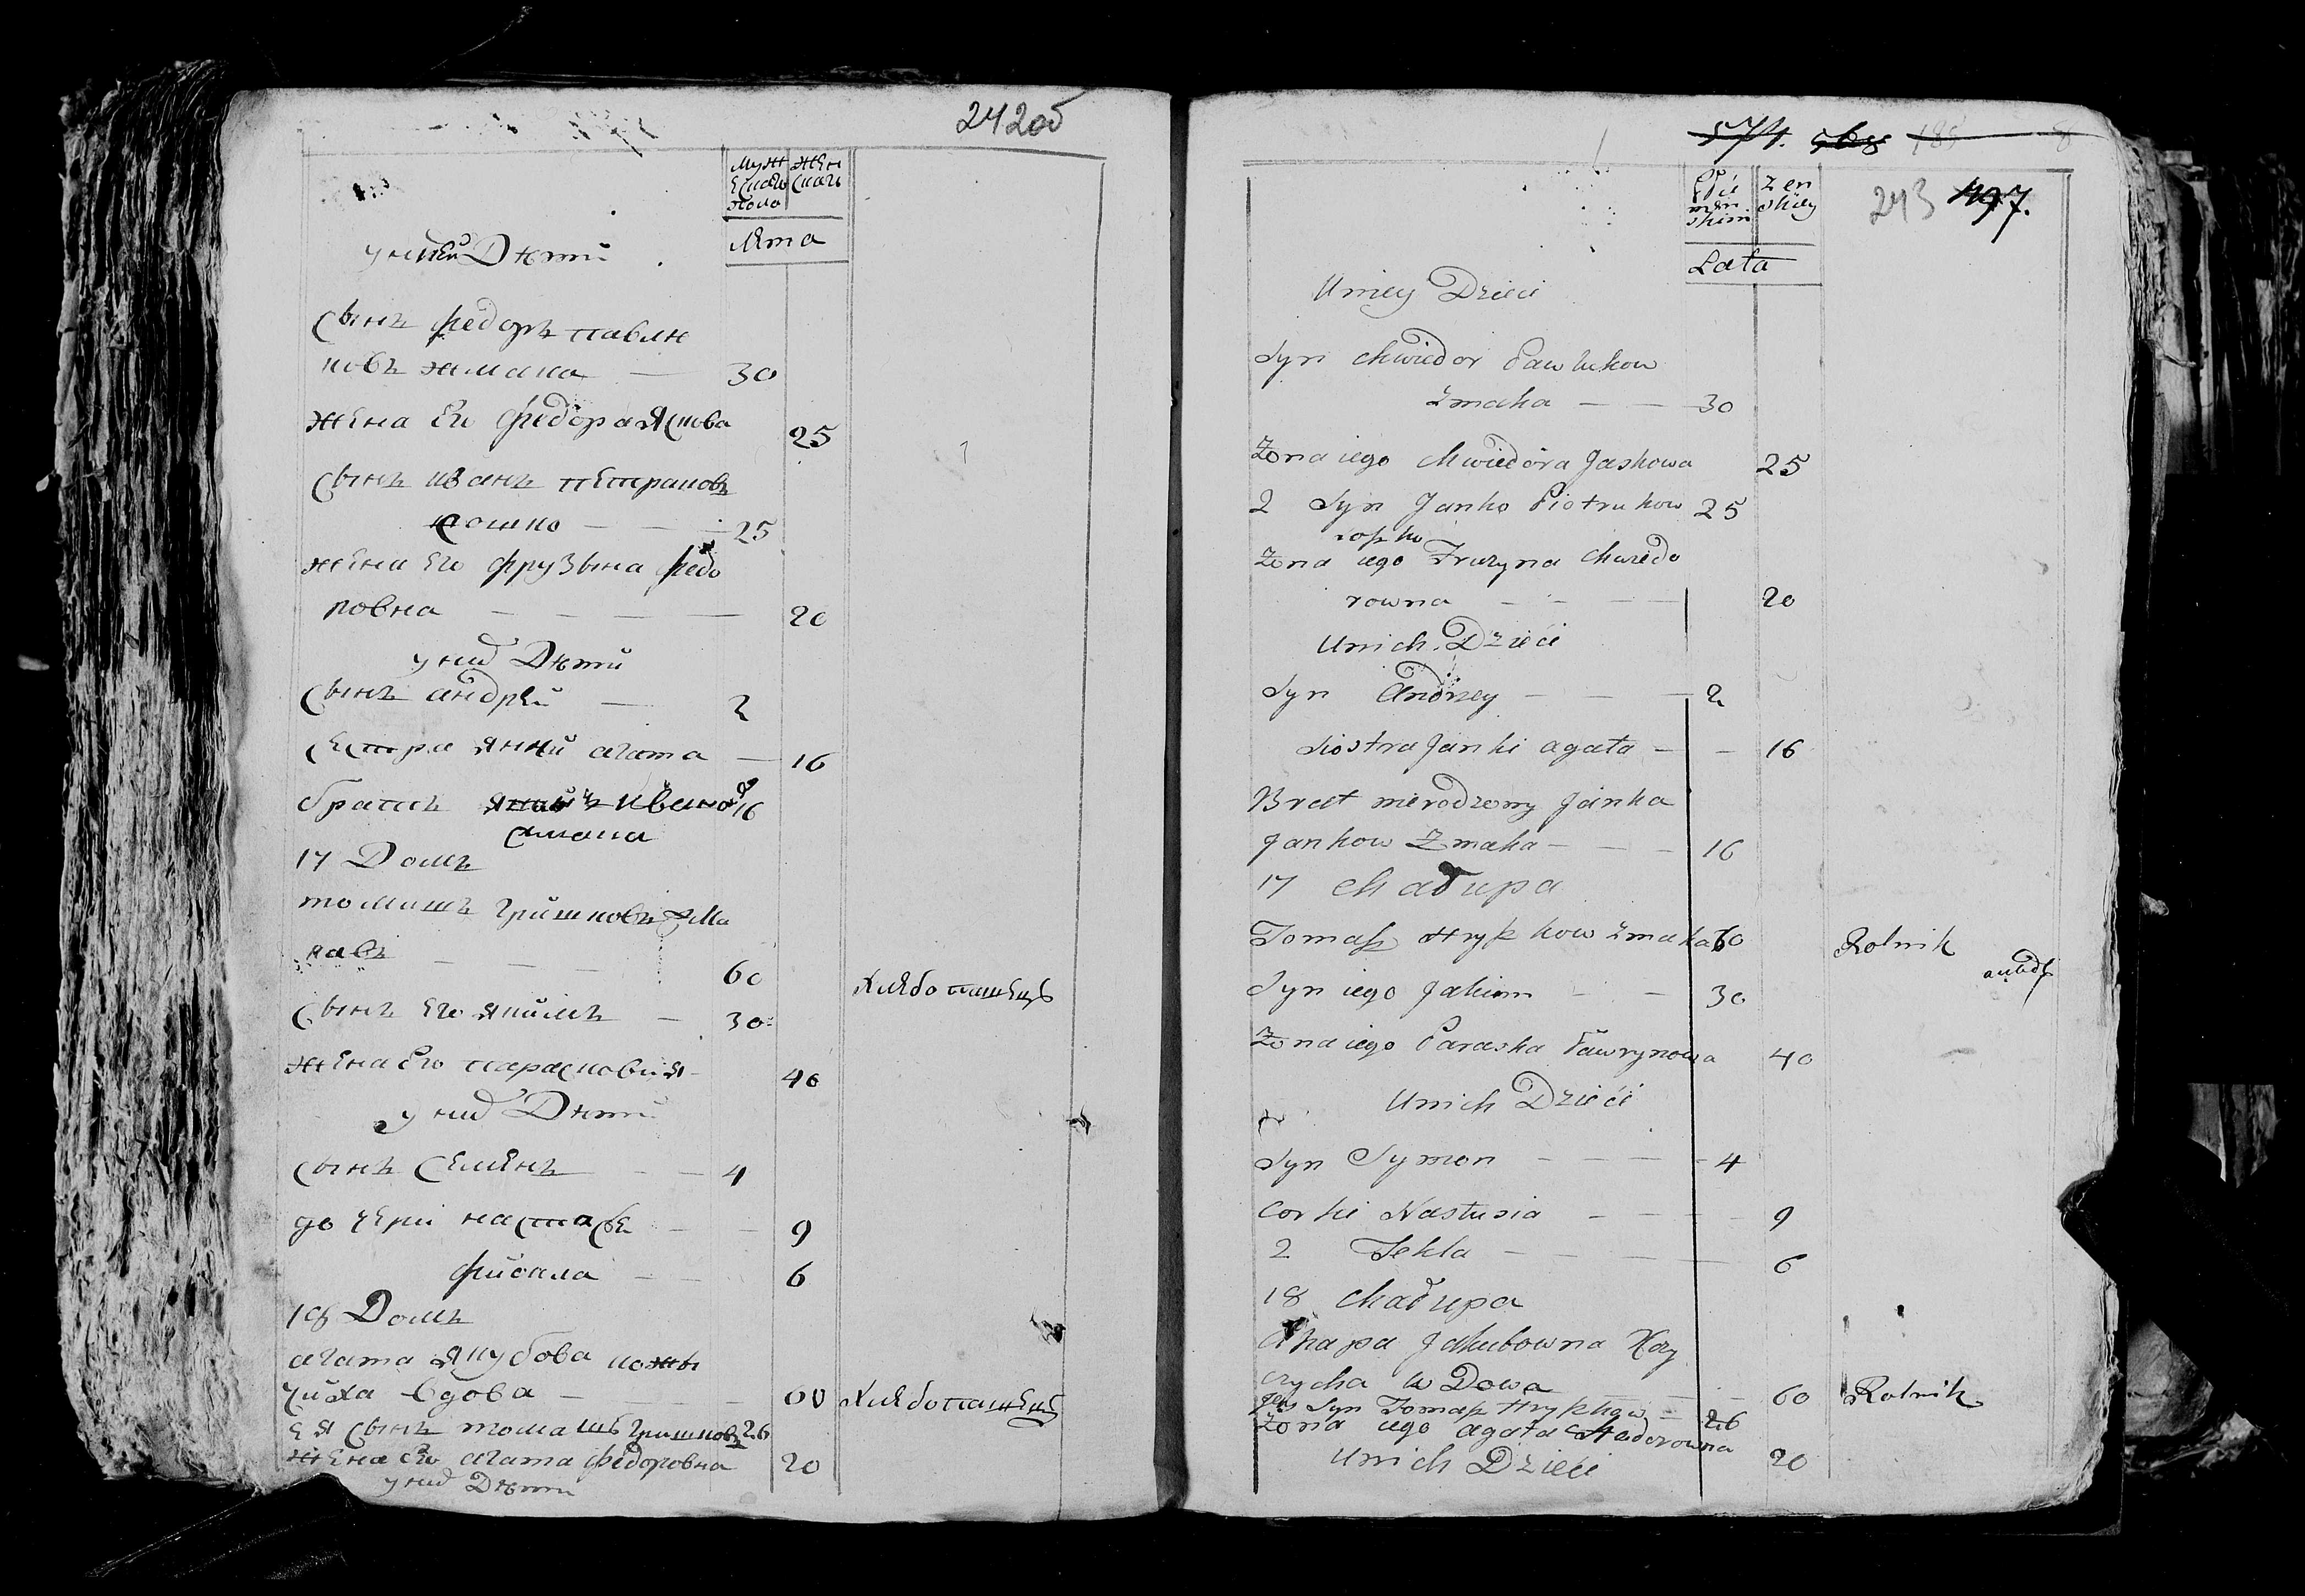 242об
Муж
ескаго
пола
жен
скаго
Лета
у ней Дѣти
Сынъ федоръ павлю
ковъ жмака — 30
жена Его федора Яскова 25
Сынъ иванъ петраковъ
сошко — — 25
жена Его фрузына федо
ровна — — — — 20
у них Дѣти
Сынъ андрей — 2
сестра Янки агата — 16
братъ 16
17 Домъ
томашъ гришковъ
60
хлебопашецъ
Сынъ Его якимъ — 30
жена Его парасковия 40
у них Дѣти
Сынъ Семенъ — — 4
дочери настася — — 9
фиокла — — 6
18 Домъ
агата Якубова
чиха вдова — 60 хлебопашецъ
Ея Сынъ томашъ гришковъ 26
жена Его агата федоровна 20
у них Дѣти
574. 185 8
243 497.
Płci
męn
skim
Zen
skiey
Lata
Uniey Dzieci
Syn Chwiedor Pawlukow
Zmaka — — 30
Zona iego Chwiedora Jaskowa 25
2 Syn Janko Piotrukow 25
Zona iego Fruzyna Chwiedo
rowna — — — — 20
Unich Dzieci
Syn Andrzey — — — 2
Siostra Janki agata — — 16
Brat nierodzony Janka
Jankow Zmaka — — — 16
17 Chałupa
Tomasz Hryszkow Zmaka 60 Rolnik
Syn iego Jakim — — 30
Zona iego Paraska Ławrynowa 40
Unich Dzieci
Syn Symon — — — — 4
Corki Nastusia — — — — 9
2 Tekla — — — — 6
18 Chałupa
Ahapa Jakubowna Koz
czycha w Dowa — — 60 Rolnik
Jey Syn Tomasz Hryszkow — 26
Zona iego agata Chwedorowna 20
Unich Dzieci